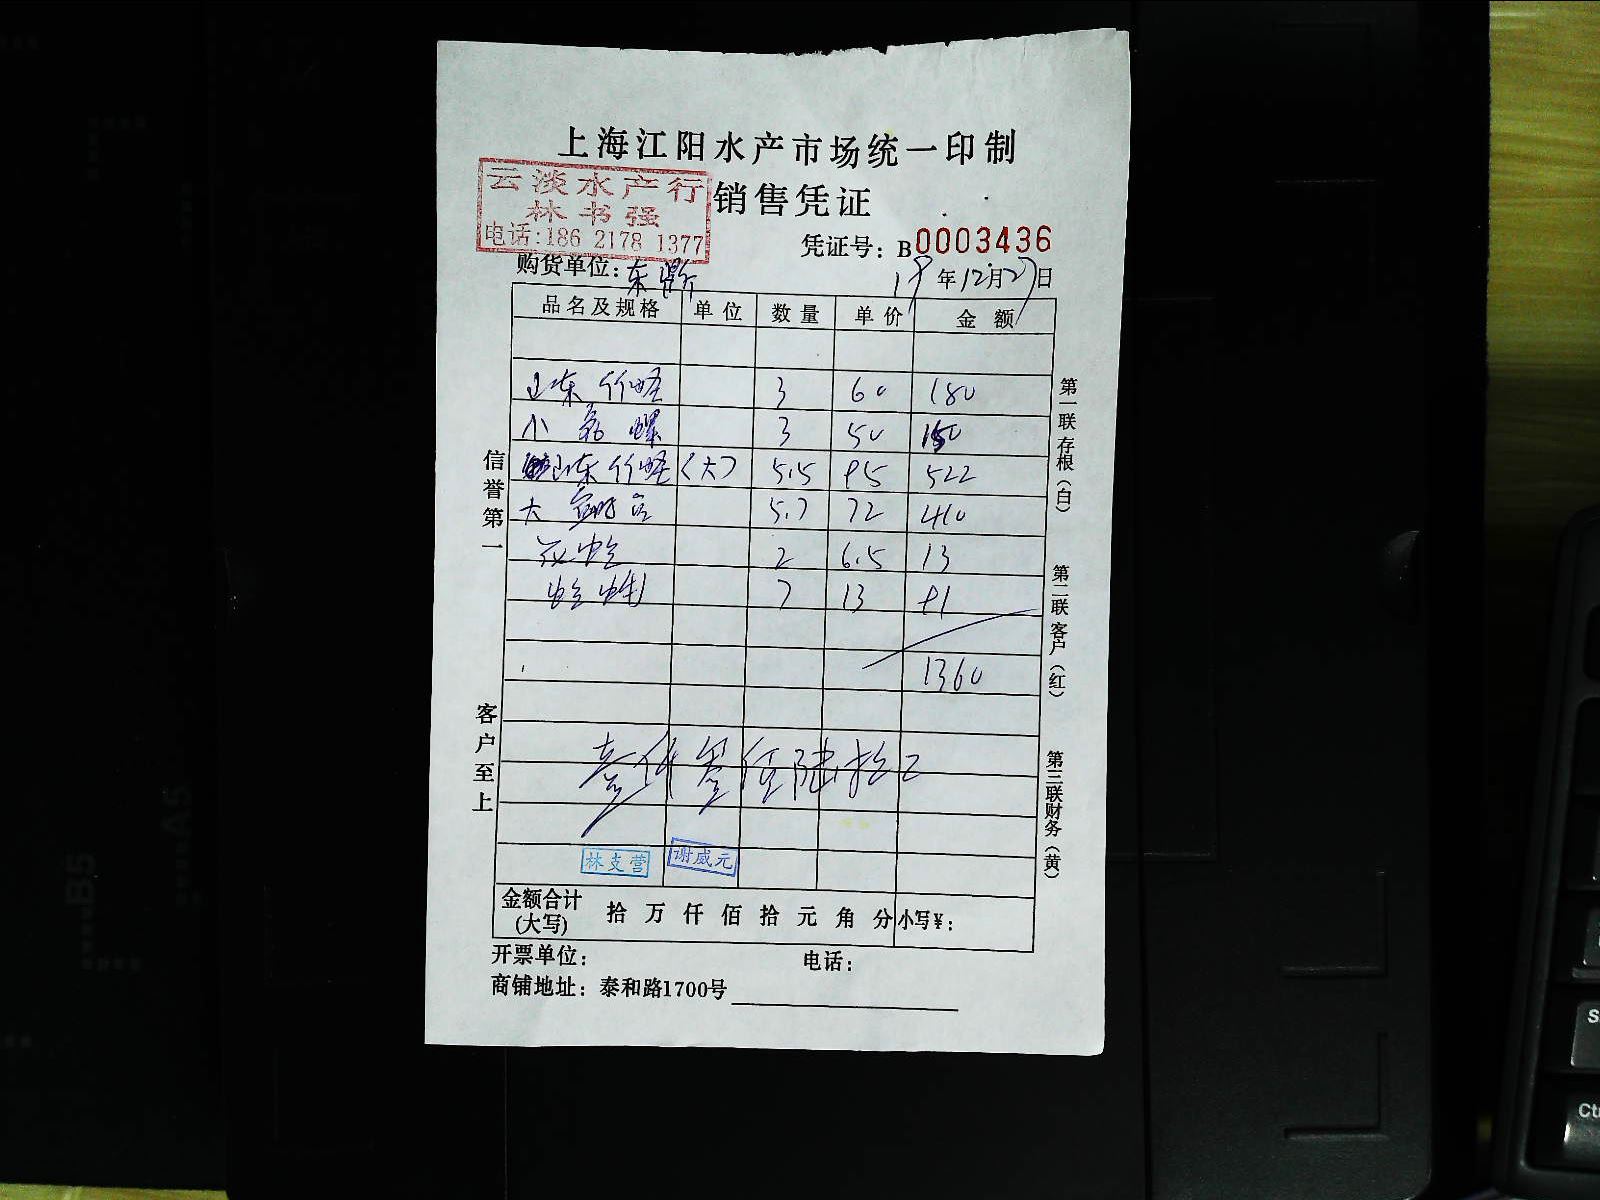 上海江阳水产市场统一印制
云淡水产行
销售凭证
林书强
电话:186 2178 1377
凭证号: B0003436
购货单位: 东
19年12月27日
品名及规格 单位 数量 单价 金额
山东竹蛏 3 60 180
小 螺 3 50 150
山东竹蛏(大) 5.5 95 522
大 5.7 72 410
花蛤 2 6.5 13
蛤蜊 7 13 91
1360
壹仟叁佰陆拾正
林支营
谢威元
金额合计(大写) 拾 万 仟 佰 拾 元 角 分 小写¥:
开票单位: 电话:
商铺地址: 泰和路1700号
信誉第一
客户至上
第一联存根(白)
第二联客户(红)
第三联财务(黄)
B5
A5